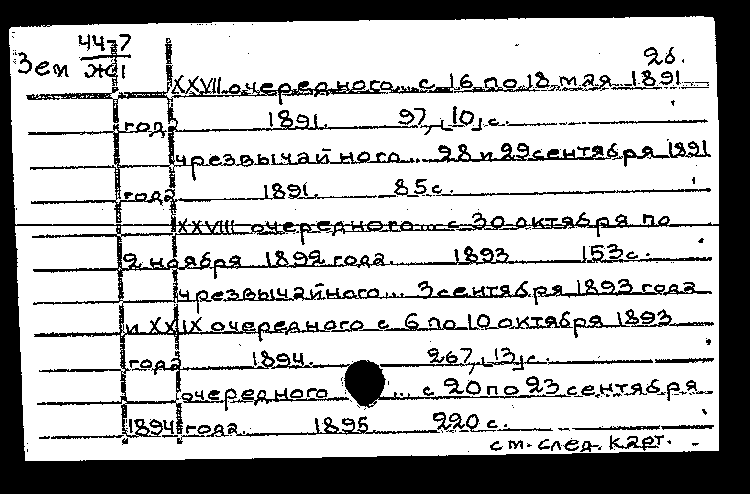 44-7 2б.
Зем ЖС1
XXVII очередного... с 16 по 18 мая 1891
года 1891. 97, [10] с.
чрезвычайного... 28 и 29 сентября 1891
года 1891. 85 с.
XXVIII очередного... с 30 октября по
2 ноября 1892 года. 1893 153 с.
чрезвычайного... 3 сентября 1893 года
и XXIX очередного с 6 по 10 октября 1893
года 1894. 267, [13] с.
очередного ... с 20 по 23 сентября
1894 года. 1895 220 с.
см. след. карт.